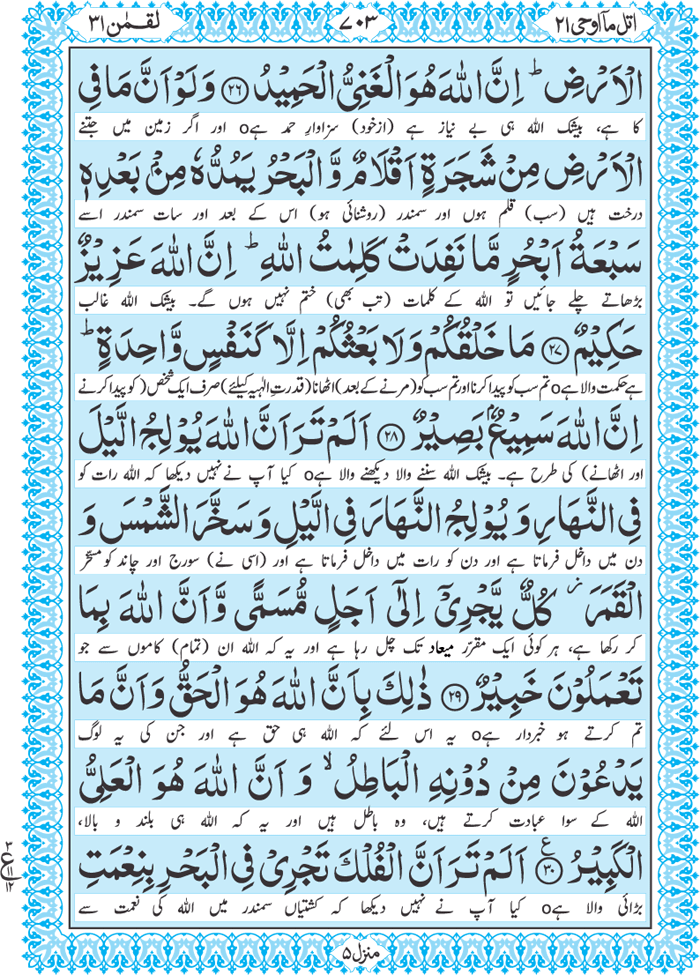 اتل مآ اوحی ۲۱
۷۰۳
لقمٰن ۳۱
الْاَرْضِ ؕ اِنَّ اللّٰهَ هُوَ الْغَنِیُّ الْحَمِیْدُ ۝۲۶ وَ لَوْ اَنَّ مَا فِی
کا ہے، بیشک اللہ ہی بے نیاز ہے (ازخود) سزاوارِ حمد ہےo اور اگر زمین میں جتنے
الْاَرْضِ مِنْ شَجَرَةٍ اَقْلَامٌ وَّ الْبَحْرُ یَمُدُّهٗ مِنْۢ بَعْدِهٖ
درخت ہیں (سب) قلم ہوں اور سمندر (روشنائی ہو) اس کے بعد اور سات سمندر اسے
سَبْعَةُ اَبْحُرٍ مَّا نَفِدَتْ كَلِمٰتُ اللّٰهِ ؕ اِنَّ اللّٰهَ عَزِیْزٌ
بڑھاتے چلے جائیں تو اللہ کے کلمات (تب بھی) ختم نہیں ہوں گے۔ بیشک اللہ غالب
حَكِیْمٌ ۝۲۷ مَا خَلْقُكُمْ وَ لَا بَعْثُكُمْ اِلَّا كَنَفْسٍ وَّاحِدَةٍ ؕ
ہے حکمت والا ہےo تم سب کو پیدا کرنا اور تم سب کو (مرنے کے بعد) اٹھانا (قدرتِ الٰہیہ کیلئے) صرف ایک شخص( کو پیدا کرنے
اِنَّ اللّٰهَ سَمِیْعٌۢ بَصِیْرٌ ۝۲۸ اَلَمْ تَرَ اَنَّ اللّٰهَ یُوْلِجُ الَّیْلَ
اور اٹھانے) کی طرح ہے۔ بیشک اللہ سننے والا دیکھنے والا ہےo کیا آپ نے نہیں دیکھا کہ اللہ رات کو
فِی النَّهَارِ وَ یُوْلِجُ النَّهَارَ فِی الَّیْلِ وَ سَخَّرَ الشَّمْسَ وَ
دن میں داخل فرماتا ہے اور دن کو رات میں داخل فرماتا ہے اور (اسی نے) سورج اور چاند کو مسخّر
الْقَمَرَ ؗ كُلٌّ یَّجْرِیْۤ اِلٰۤى اَجَلٍ مُّسَمًّى وَّ اَنَّ اللّٰهَ بِمَا
کر رکھا ہے، ہر کوئی ایک مقرّر میعاد تک چل رہا ہے اور یہ کہ اللہ ان (تمام) کاموں سے جو
تَعْمَلُوْنَ خَبِیْرٌ ۝۲۹ ذٰلِكَ بِاَنَّ اللّٰهَ هُوَ الْحَقُّ وَ اَنَّ مَا
تم کرتے ہو خبردار ہےo یہ اس لئے کہ اللہ ہی حق ہے اور جن کی یہ لوگ
یَدْعُوْنَ مِنْ دُوْنِهِ الْبَاطِلُ ۙ وَ اَنَّ اللّٰهَ هُوَ الْعَلِیُّ
اللہ کے سوا عبادت کرتے ہیں، وہ باطل ہیں اور یہ کہ اللہ ہی بلند و بالا،
الْكَبِیْرُ ۝۳۰ۧ اَلَمْ تَرَ اَنَّ الْفُلْكَ تَجْرِیْ فِی الْبَحْرِ بِنِعْمَتِ
بڑائی والا ہےo کیا آپ نے نہیں دیکھا کہ کشتیاں سمندر میں اللہ کی نعمت سے
۳
ع
۱۱
۱۲
منزل ۵